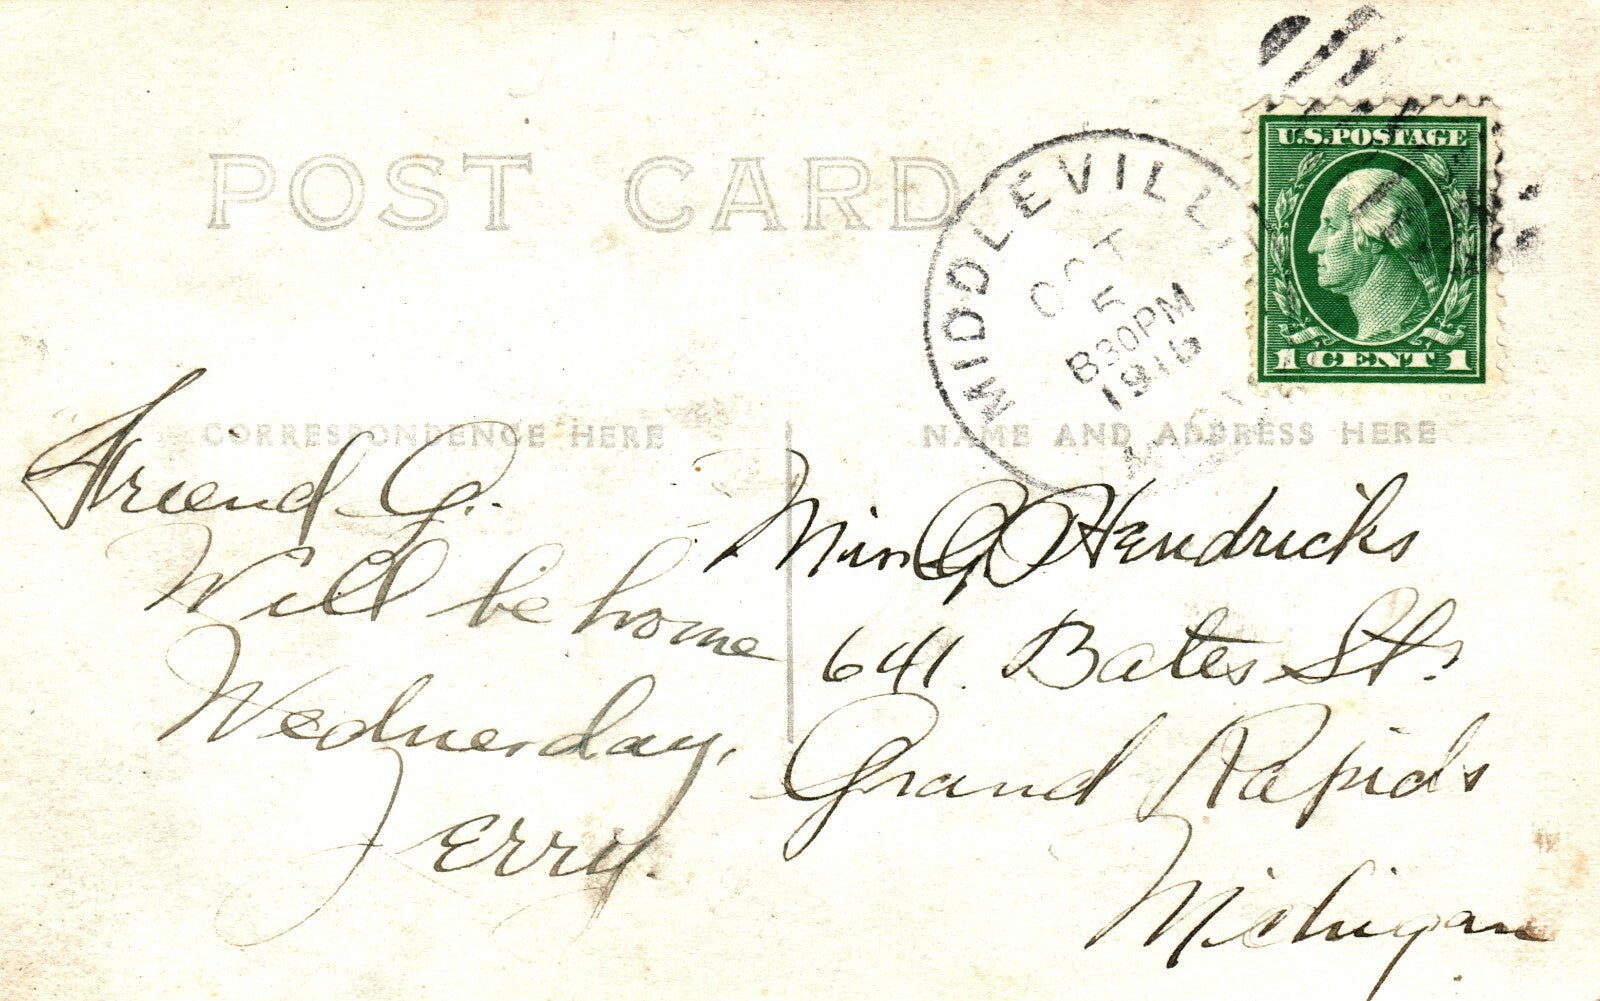 POST CARD
U.S. POSTAGE
1 CENT 1
MIDDLEVILLE
OCT
5
830PM
1916
MICH.
CORRESPONDENCE HERE
Friend G.
Will be home
Wednesday,
Jerry.
NAME AND ADDRESS HERE
Miss G Hendricks
641 Bates St.
Grand Rapids
Michigan